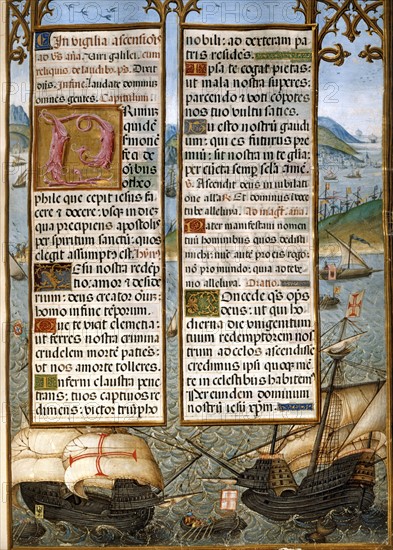 In vigilia ascensiōis
ad vs̄ aña. Viri galilei. cum
reliquis de laudibꝯ. ps. Dixit
dn̄s. In fine laudate dominus
omnes gentes. Capitulum.
Primū
quidē
sermonē
feci de
oībus
o theo
phile que cepit iesus fa
cere & docere. usqȝ in diez
qua precipiens apostolis
per spiritum sanctū: quos
elegit assumptꝯ est. hȳnꝯ
Iesu nostra redēp
tio: amor & deside
rium: deus creator oīuȝ:
homo in fine tēporum.
Que te vicit clemētia:
ut ferres nostra crimina
crudelem mortē patiēs:
ut nos a morte tolleres.
Inferni claustra pene
trans: tuos captiuos re
dimens: victor triūpho
nobili: ad dexteram pa
tris residēs.
Ipsa te cogat pietas:
ut mala nostra superes:
parcendo & voti cōpotes
nos tuo vultu saties.
Tu esto nostrū gaudi
um: qui es futurus pre
miū: sit nostra in te glia:
per cūcta semp secla. amē.
℣. Ascendit deus in iubilati
one alla. ℟. Et dominus in voce
tube alleluya. Ad magt. aña.
Pater manifestaui nomen
tuū hominibus quos dedisti
michi: nūc autē pro eis rogo:
nō pro mundo: quia ad te ve
nio alleluya. Oratio.
Concede qs̄ oīps
deus: ut qui ho
dierna die unigenitum
tuum redemptorem nos
trum ad celos ascendisse
credimus ipsi quoqȝ mē
te in celestibus habitem.
Per eundem dominum
nostrū iesū xp̄m.